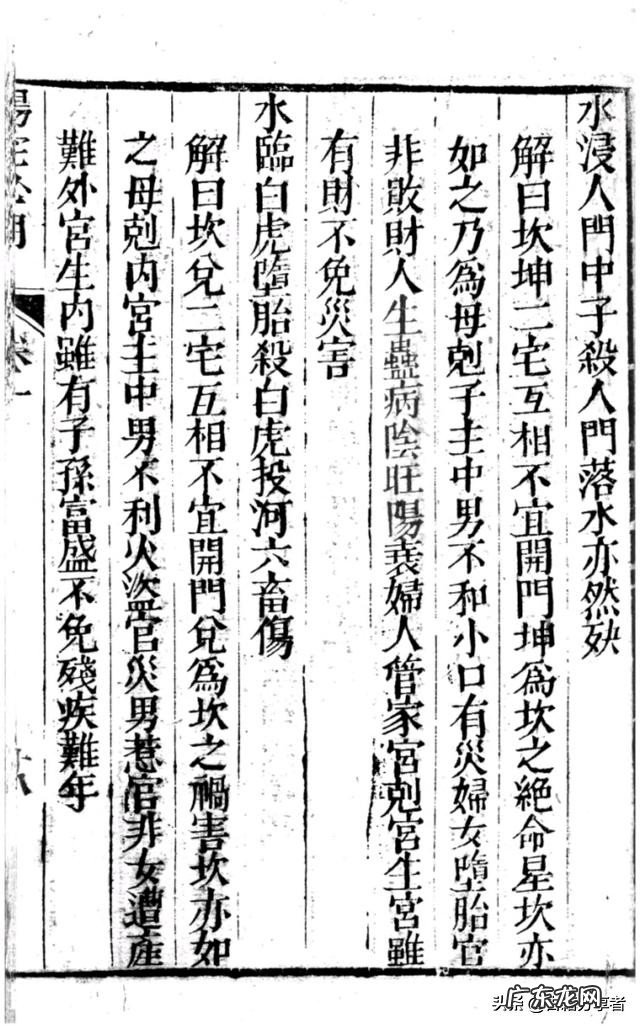 水浸人門中子殺人門落水亦然妷
解曰坎坤二宅互相不宜開門坤為坎之絶命星坎亦
如之乃為母剋子主中男不和小口有災婦女墮胎官
非敗財人生蠱病陰旺陽衰婦人管家宮剋宮生宮雖
有財不免災害
水臨白虎墮胎殺白虎投河六畜傷
解曰坎兌二宅互相不宜開門兌為坎之禍害坎亦如
之母剋内宮主中男不利火盜官災男惹官非女遭産
難外宮生内雖有子孫富盛不免殘疾難年
卷一
廣东龙网
头条